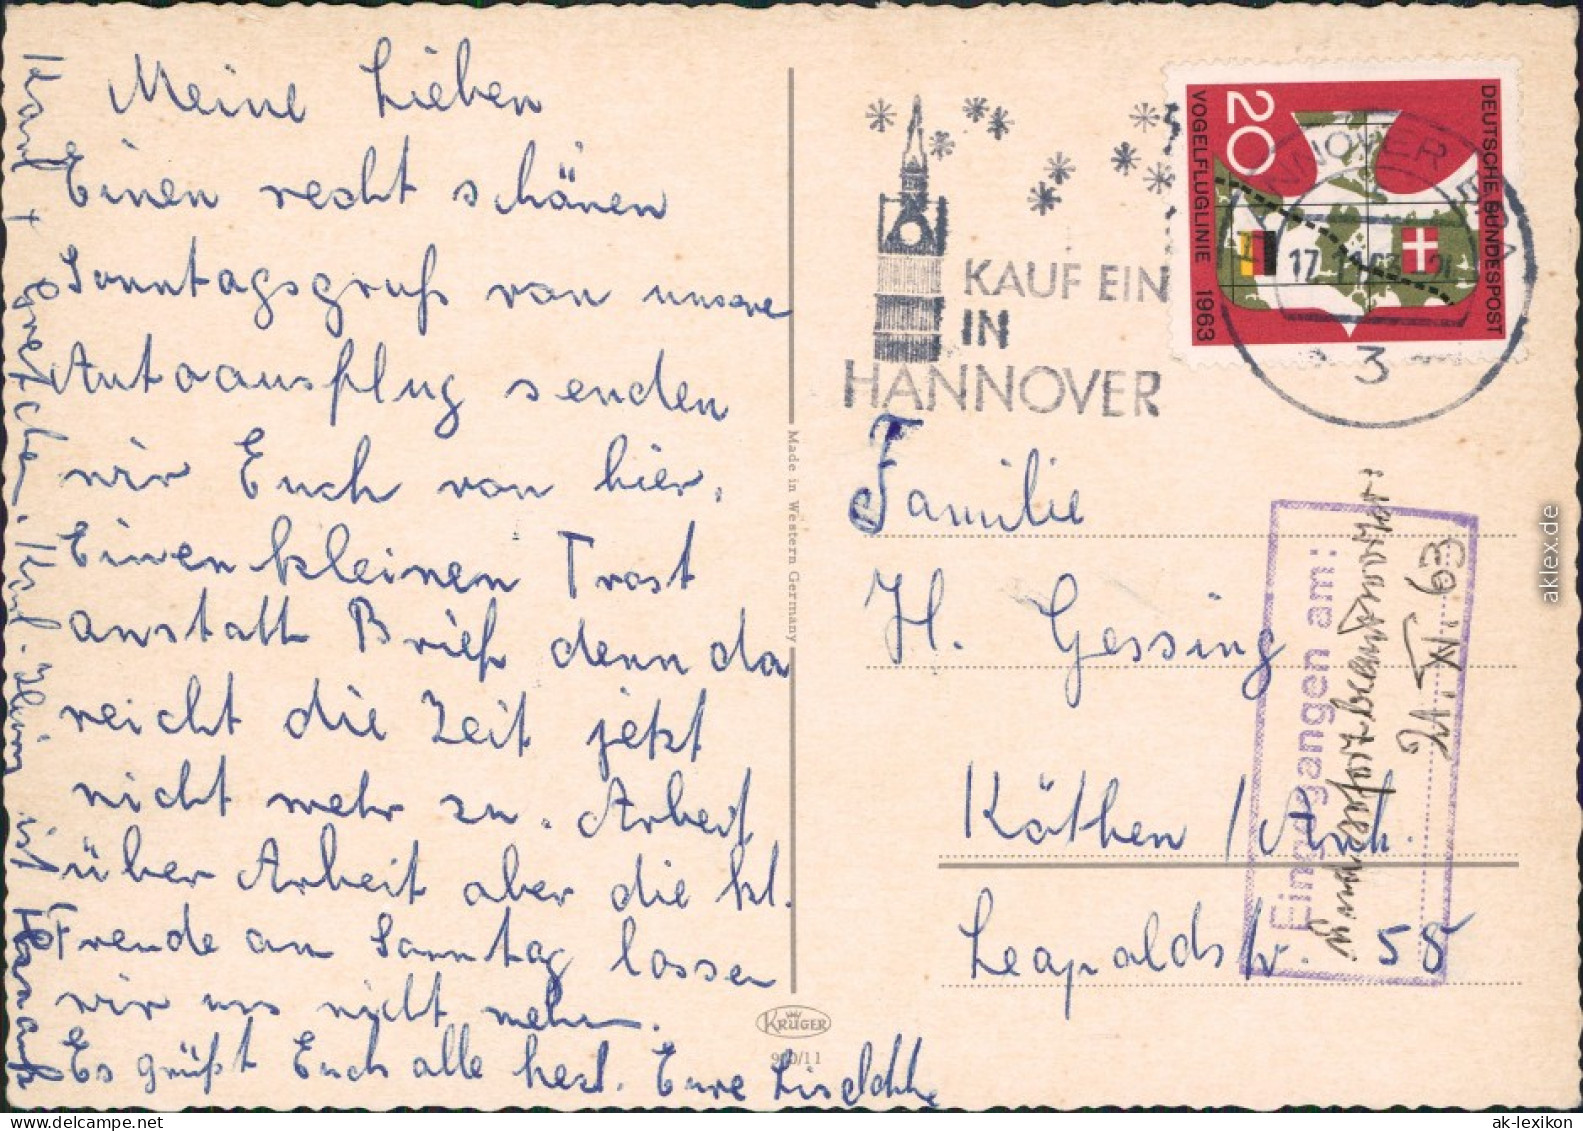 Meine Lieben
Einen recht schönen
Sonntagsgruß von unserem
Autoausflug senden
wir Euch von hier.
Einen kleinen Trost
anstatt Brief denn da
reicht die Zeit jetzt
nicht mehr zu. Arbeit
über Arbeit aber die kl.
Freude am Sonntag lassen
wir uns nicht nehmen.
Es grüßt Euch alle herzl. Eure
Karl + Gretchen.
ist
KAUF EIN
IN
HANNOVER
DEUTSCHE BUNDESPOST
20
VOGELFLUGLINIE 1963
HANNOVER
17.11.63
3
Familie
H. Gessing
Köthen / Anh.
Leopoldstr. 58
Eingegangen am:
21. XI. 63
Made in Western Germany
KRÜGER
900/11
aklex.de
ak-lexikon